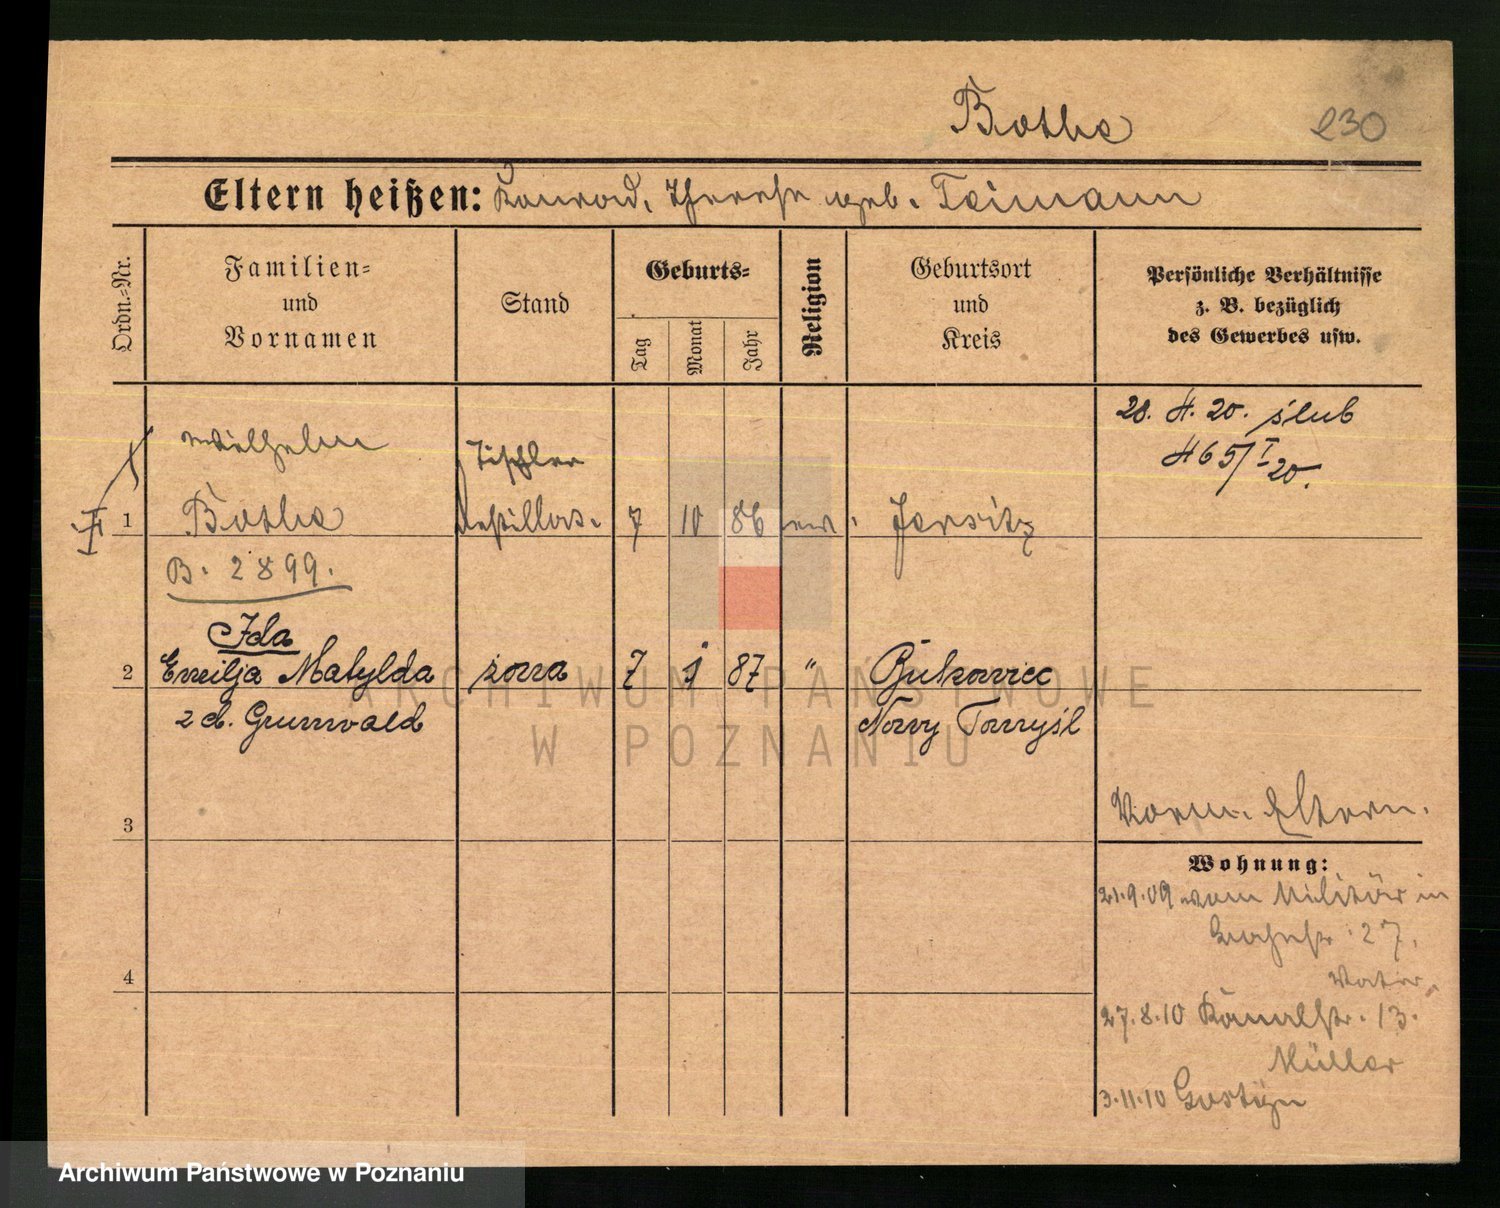 Bothe 230
Eltern heißen: Konrad, Therese geb. Teimann
Ordn.-Nr.
Familien-
und
Vornamen
Stand
Geburts-
Tag
Monat
Jahr
Religion
Geburtsort
und
Kreis
Persönliche Verhältnisse
z. B. bezüglich
des Gewerbes usw.
28. 4. 20. ślub
465/I 20.
Wilhelm Tischler
1 Bothe 7 10 86 ev. Jersitz
B. 2899.
Ida
2 Emilja Matylda żona 7 1 87 " Bukowiec
z d. Grunwald Nowy Tomyśl
3
Vorm. Eltern.
Wohnung:
21.9.09 vom Militär in
27.
Vater.
4
27.8.10 Kanalstr. 13.
Müller
3.11.10 Gostyn
ARCHIWUM PAŃSTWOWE
W POZNANIU
Archiwum Państwowe w Poznaniu